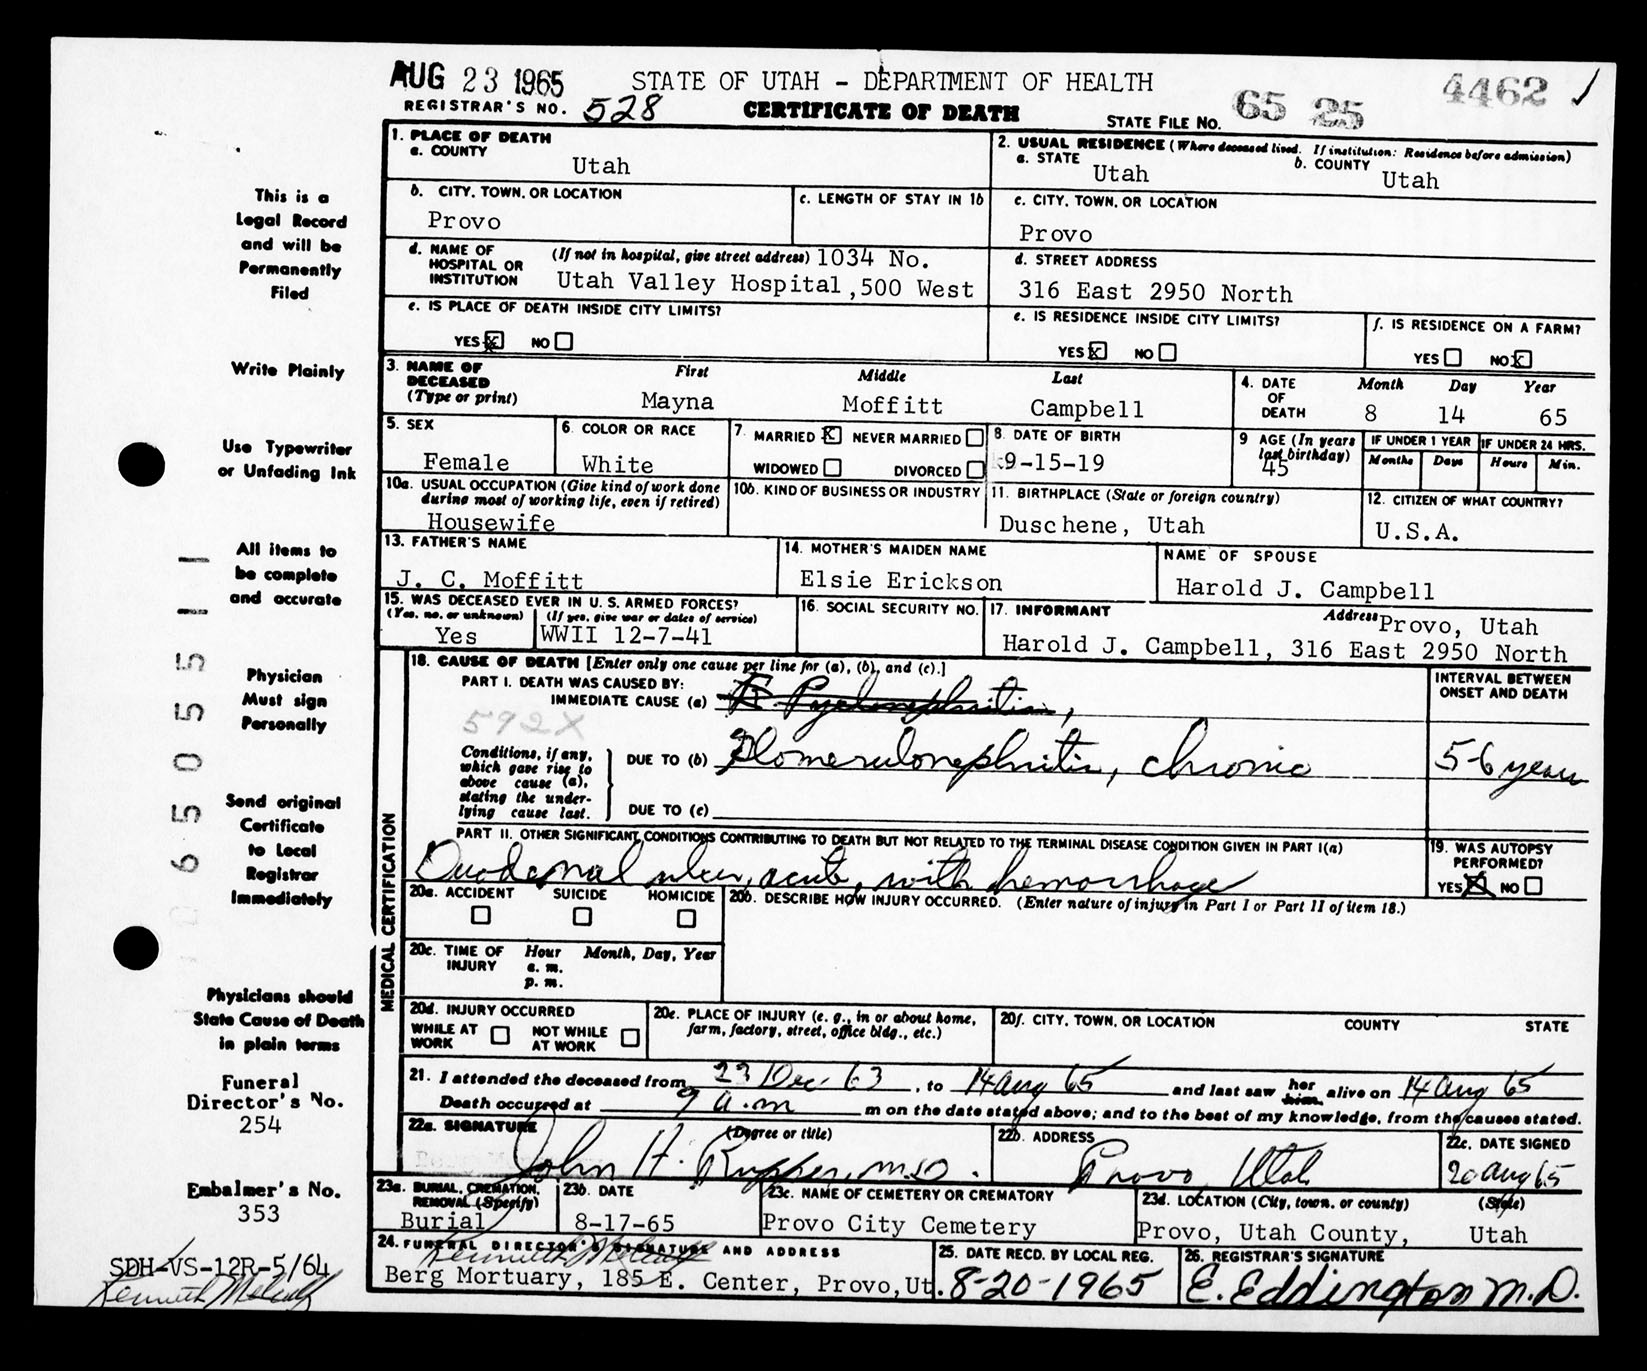 AUG 23 1965 STATE OF UTAH - DEPARTMENT OF HEALTH 4462
REGISTRAR'S NO. 528 CERTIFICATE OF DEATH STATE FILE NO. 65 25
This is a
Legal Record
and will be
Permanently
Filed
Write Plainly
Use Typewriter
or Unfading Ink
All items to
be complete
and accurate
Physician
Must sign
Personally
Send original
Certificate
to Local
Registrar
Immediately
Physicians should
State Cause of Death
in plain terms
Funeral
Director's No.
254
Embalmer's No.
353
SDH-VS-12R-5/64
Kenneth Metcalf
1. PLACE OF DEATH
a. COUNTY
Utah
2. USUAL RESIDENCE (Where deceased lived. If institution: Residence before admission)
a. STATE
Utah
b. COUNTY
Utah
b. CITY, TOWN, OR LOCATION
Provo
c. LENGTH OF STAY IN 1b
c. CITY, TOWN, OR LOCATION
Provo
d. NAME OF HOSPITAL OR INSTITUTION (If not in hospital, give street address) 1034 No.
Utah Valley Hospital, 500 West
d. STREET ADDRESS
316 East 2950 North
e. IS PLACE OF DEATH INSIDE CITY LIMITS?
YES X NO
e. IS RESIDENCE INSIDE CITY LIMITS?
YES X NO
f. IS RESIDENCE ON A FARM?
YES NO X
3. NAME OF DECEASED (Type or print)
First Middle Last
Mayna Moffitt Campbell
4. DATE OF DEATH
Month Day Year
8 14 65
5. SEX
Female
6. COLOR OR RACE
White
7. MARRIED X NEVER MARRIED
WIDOWED DIVORCED
8. DATE OF BIRTH
9-15-19
9. AGE (In years last birthday)
45
IF UNDER 1 YEAR
Months Days
IF UNDER 24 HRS.
Hours Min.
10a. USUAL OCCUPATION (Give kind of work done during most of working life, even if retired)
Housewife
10b. KIND OF BUSINESS OR INDUSTRY
11. BIRTHPLACE (State or foreign country)
Duschene, Utah
12. CITIZEN OF WHAT COUNTRY?
U.S.A.
13. FATHER'S NAME
J. C. Moffitt
14. MOTHER'S MAIDEN NAME
Elsie Erickson
NAME OF SPOUSE
Harold J. Campbell
15. WAS DECEASED EVER IN U. S. ARMED FORCES?
(Yes, no, or unknown) (If yes, give war or dates of service)
Yes WWII 12-7-41
16. SOCIAL SECURITY NO.
17. INFORMANT Address Provo, Utah
Harold J. Campbell, 316 East 2950 North
MEDICAL CERTIFICATION
18. CAUSE OF DEATH [Enter only one cause per line for (a), (b), and (c).]
PART I. DEATH WAS CAUSED BY:
IMMEDIATE CAUSE (a) Pyelonephritis,
592X
Conditions, if any, which gave rise to above cause (a), stating the underlying cause last.
DUE TO (b) Glomerulonephritis, chronic
DUE TO (c)
INTERVAL BETWEEN ONSET AND DEATH
5-6 years
PART II. OTHER SIGNIFICANT CONDITIONS CONTRIBUTING TO DEATH BUT NOT RELATED TO THE TERMINAL DISEASE CONDITION GIVEN IN PART I(a)
Duodenal ulcer, acute, with hemorrhage
19. WAS AUTOPSY PERFORMED?
YES X NO
20a. ACCIDENT SUICIDE HOMICIDE
20b. DESCRIBE HOW INJURY OCCURRED. (Enter nature of injury in Part I or Part II of item 18.)
20c. TIME OF INJURY Hour Month, Day, Year
a. m.
p. m.
20d. INJURY OCCURRED
WHILE AT WORK NOT WHILE AT WORK
20e. PLACE OF INJURY (e. g., in or about home, farm, factory, street, office bldg., etc.)
20f. CITY, TOWN, OR LOCATION COUNTY STATE
21. I attended the deceased from 23 Dec. 63, to 14 Aug 65 and last saw her him alive on 14 Aug 65
Death occurred at 9 a.m m on the date stated above; and to the best of my knowledge, from the causes stated.
22a. SIGNATURE (Degree or title)
John H. Rupper, M.D.
22b. ADDRESS
Provo, Utah
22c. DATE SIGNED
20 Aug 65
23a. BURIAL, CREMATION, REMOVAL (Specify)
Burial
23b. DATE
8-17-65
23c. NAME OF CEMETERY OR CREMATORY
Provo City Cemetery
23d. LOCATION (City, town, or county) (State)
Provo, Utah County, Utah
24. FUNERAL DIRECTOR'S SIGNATURE AND ADDRESS
Kenneth Metcalf
Berg Mortuary, 185 E. Center, Provo, Ut.
25. DATE RECD. BY LOCAL REG.
8-20-1965
26. REGISTRAR'S SIGNATURE
E. Eddington M.D.